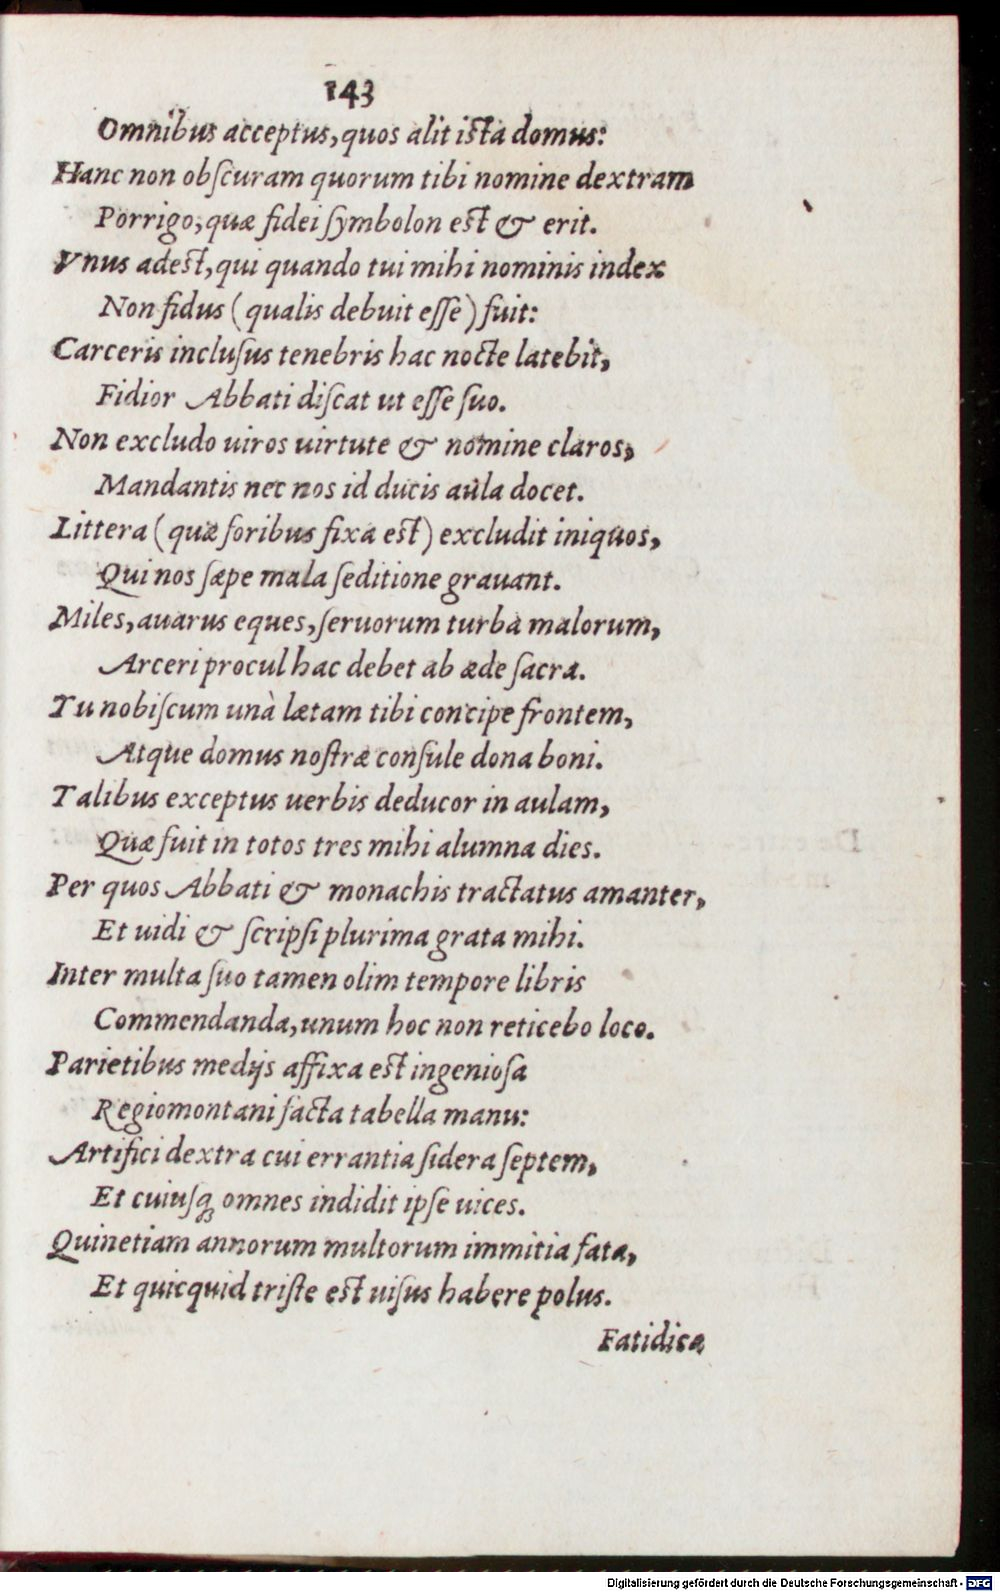 143
Omnibus acceptus, quos alit ista domus:
Hanc non obſcuram quorum tibi nomine dextram
Porrigo, quæ fidei ſymbolon est & erit.
Vnus adest, qui quando tui mihi nominis index
Non fidus (qualis debuit eſſe) fuit:
Carceris incluſus tenebris hac nocte latebit,
Fidior Abbati diſcat ut eſſe ſuo.
Non excludo uiros uirtute & nomine claros,
Mandantis nec nos id ducis aula docet.
Littera (quæ foribus fixa est) excludit iniquos,
Qui nos ſæpe mala ſeditione grauant.
Miles, auarus eques, ſeruorum turba malorum,
Arceri procul hac debet ab æde ſacra.
Tu nobiſcum unà lætam tibi concipe frontem,
Atque domus noſtræ conſule dona boni.
Talibus exceptus uerbis deducor in aulam,
Quæ fuit in totos tres mihi alumna dies.
Per quos Abbati & monachis tractatus amanter,
Et uidi & ſcripſi plurima grata mihi.
Inter multa ſuo tamen olim tempore libris
Commendanda, unum hoc non reticebo loco.
Parietibus medijs affixa est ingenioſa
Regiomontani facta tabella manu:
Artifici dextra cui errantia ſidera ſeptem,
Et cuiuſq́ꝫ omnes indidit ipſe uices.
Quinetiam annorum multorum immitia fata,
Et quicquid triſte est uiſus habere polus.
Fatidica
Digitalisierung gefördert durch die Deutsche Forschungsgemeinschaft - DFG